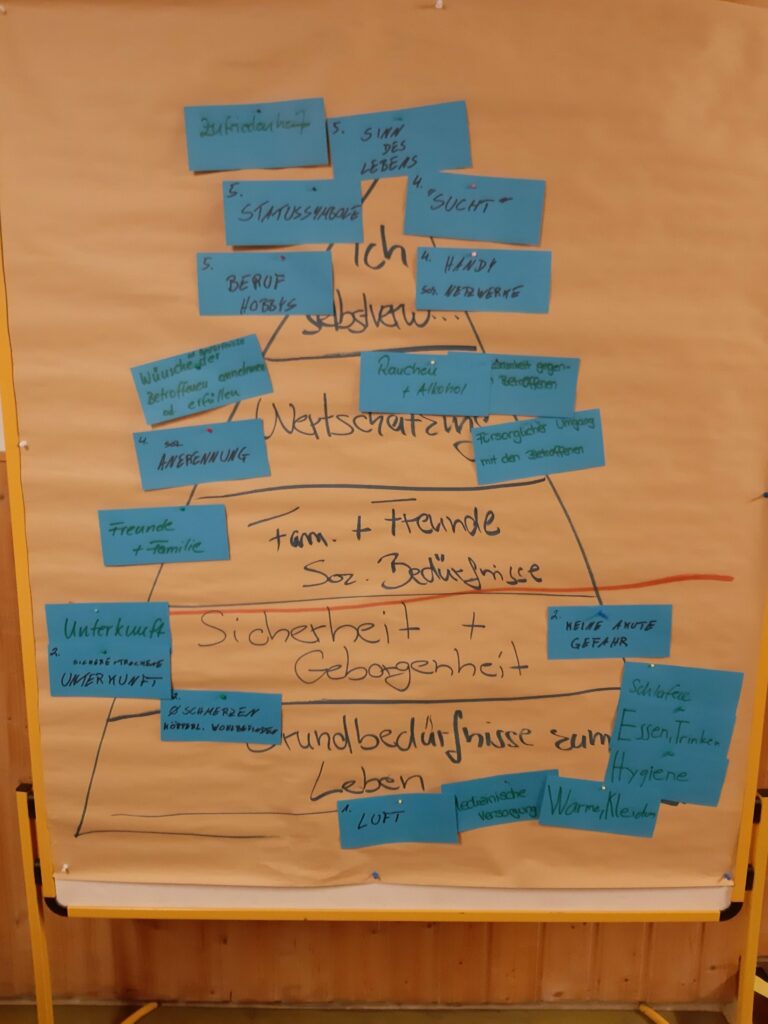 Zufriedenheit
5.
SINN
DES
LEBENS
5.
STATUSSYMBOLE
4.
"SUCHT"
Ich
selbstverw...
5.
BERUF
HOBBYS
4. HANDY
SOZ. NETZWERKE
Wünsche der
Betroffenen
od. erfüllen
Rauchen
+ Alkohol
gegen-
Betroffenen
Wertschätzung
4. SOZ.
ANERKENNUNG
Fürsorglicher Umgang
mit den Betroffenen
Freunde
+ Familie
Fam. + Freunde
Soz. Bedürfnisse
Unterkunft
2.
UNTERKUNFT
Sicherheit +
Geborgenheit
2. KEINE AKUTE
GEFAHR
Ø SCHMERZEN
KÖRPERL. WOHLBEFINDEN
Grundbedürfnisse zum
Leben
Schlafen
Essen, Trinken
Hygiene
1.
LUFT
Medizinische
Versorgung
Wärme, Kleidung